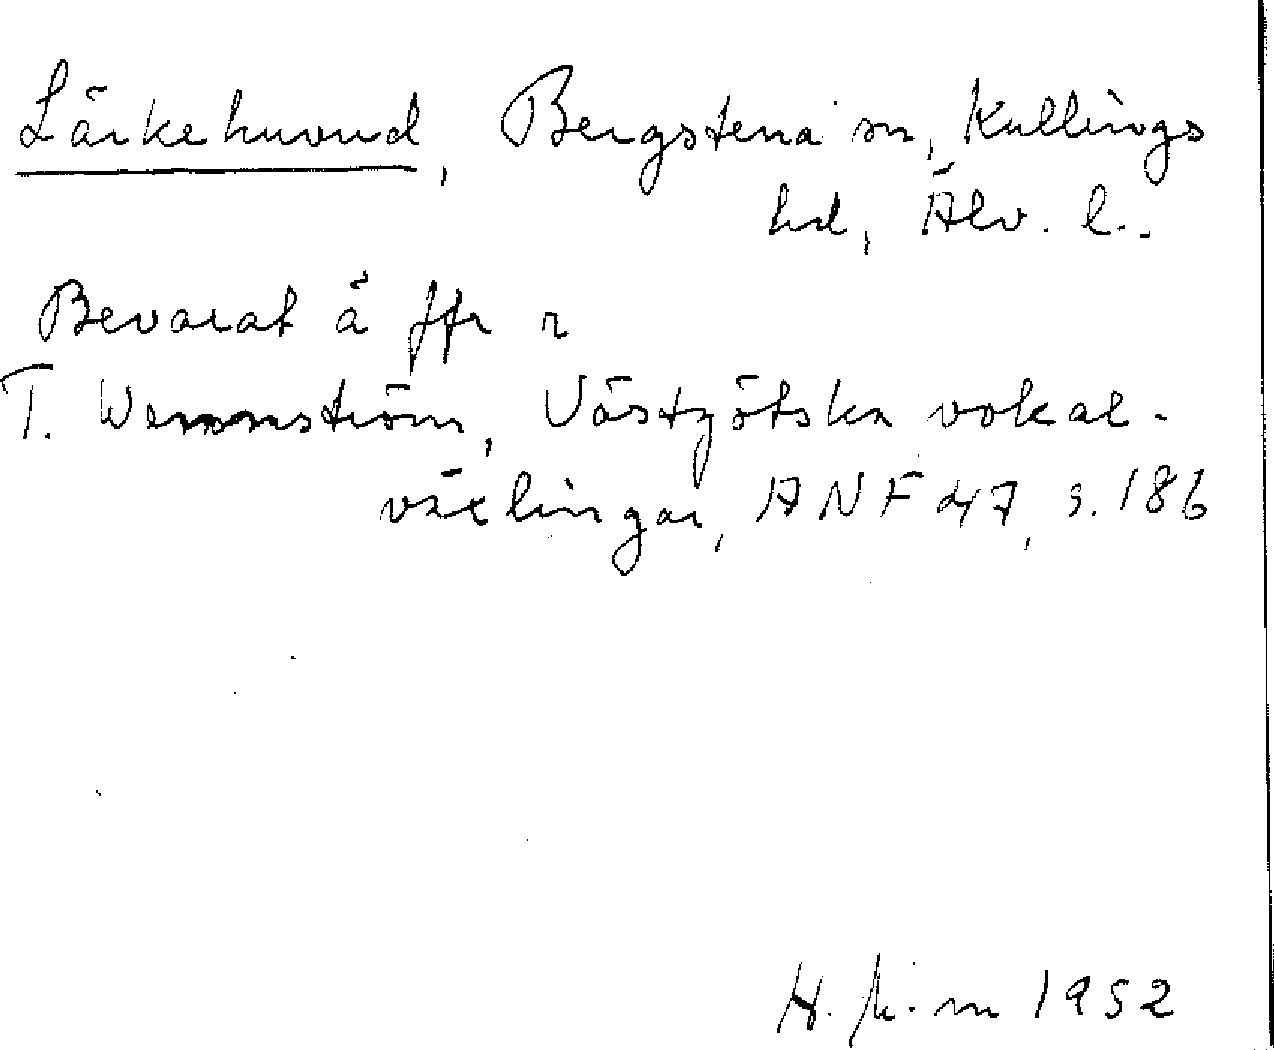 Lärkehuvud, Bergstena sn, Kullings
hd, Älv. l..
Bevarat ä ffr r
T. Wennström, Västgötska vokal-
växlingar, ANF 47, s. 186
H. 1952